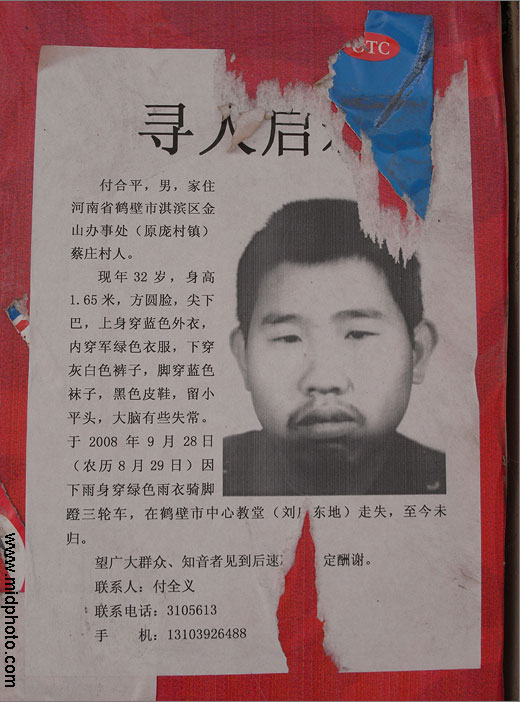 CTC
寻人启
付合平，男，家住
河南省鹤壁市淇滨区金
山办事处（原庞村镇）
蔡庄村人。
现年 32 岁，身高
1.65 米，方圆脸，尖下
巴，上身穿蓝色外衣，
内穿军绿色衣服，下穿
灰白色裤子，脚穿蓝色
袜子，黑色皮鞋，留小
平头，大脑有些失常。
于 2008 年 9 月 28 日
（农历 8 月 29 日）因
下雨身穿绿色雨衣骑脚
蹬三轮车，在鹤壁市中心教堂（刘 东地）走失，至今未
归。
望广大群众、知音者见到后速 定酬谢。
联系人：付全义
联系电话：3105613
手 机：13103926488
www.midphoto.com